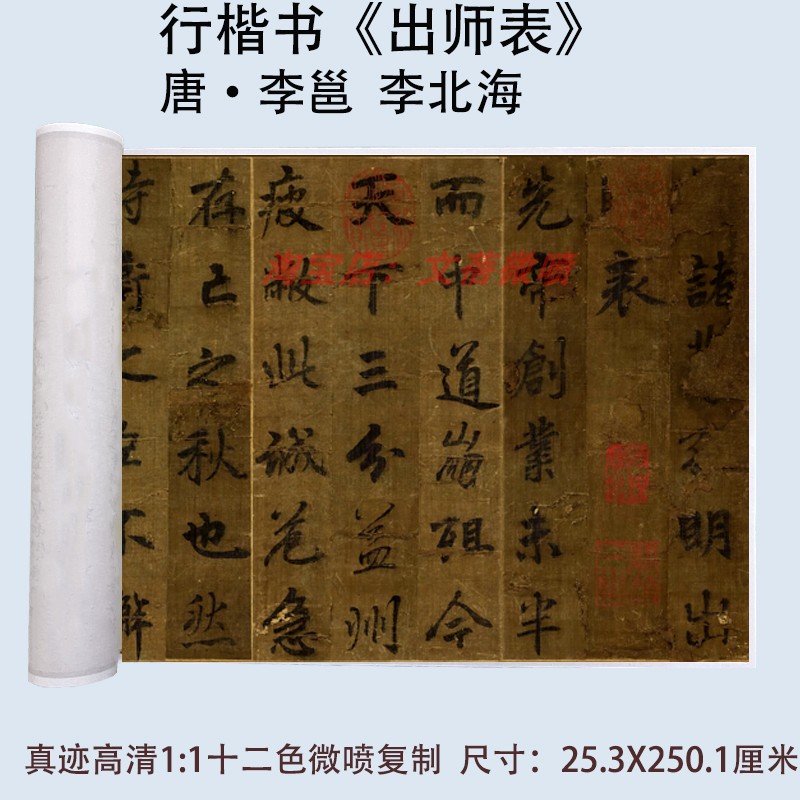 行楷书《出师表》
唐·李邕 李北海
諸明出
表
先帝創業未半
而中道崩殂今
天下三分益州
疲敝此誠危急
存亡之秋也然
侍衛之臣不懈
淘宝店：文
真迹高清1:1十二色微喷复制 尺寸：25.3X250.1厘米